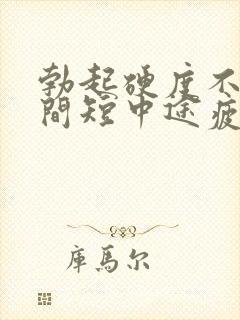 勃起硬度不
間短中途疲
庫馬尔